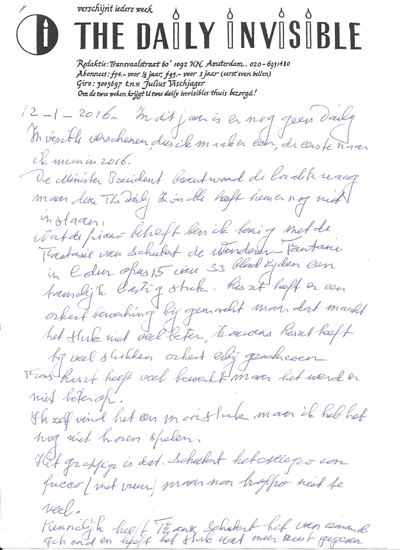 verschijnt iedere week
THE DAILY INVISIBLE
Redaktie: Transvaalstraat 60² 1092 HN, Amsterdam.. 020-6931480
Giro: 5005697 t.n.v. Julius Vischjager
Om de twee weken krijgt U twee daily invisibles thuis bezorgd!
12-1-2016. In dit jaar is er nog geen Daily
Invisible verschenen, dus ik maak er een, de eerste naar
ik meen in 2016.
De Minister President de laatste vraag
maar deze The Daily Invisible heeft hem er nog niet
in staan.
Wat de piano betreft ben ik bezig met de
Fantasie van Schubert de Wanderer Fantasie
in C dur opus 15 van 33 bladzijden een
tamelijk lastig stuk. Liszt heeft er een
orkest bewerking bij gemaakt maar dat maakt
het stuk niet veel beter, trouwens Liszt heeft
bij veel stukken orkest erbij geschreven
Franz Liszt heeft veel bewerkt maar het werd er
niet beter op.
Ik zelf vind het een mooi stuk maar ik heb het
nog niet horen spelen.
Het grappige is dat Schubert het allegro con
fuoco (met vuur) maar non troppo niet te
veel.
Kennelijk heeft Franz Schubert het van iemand
gehoord en heeft het stuk wat meer rust gegeven